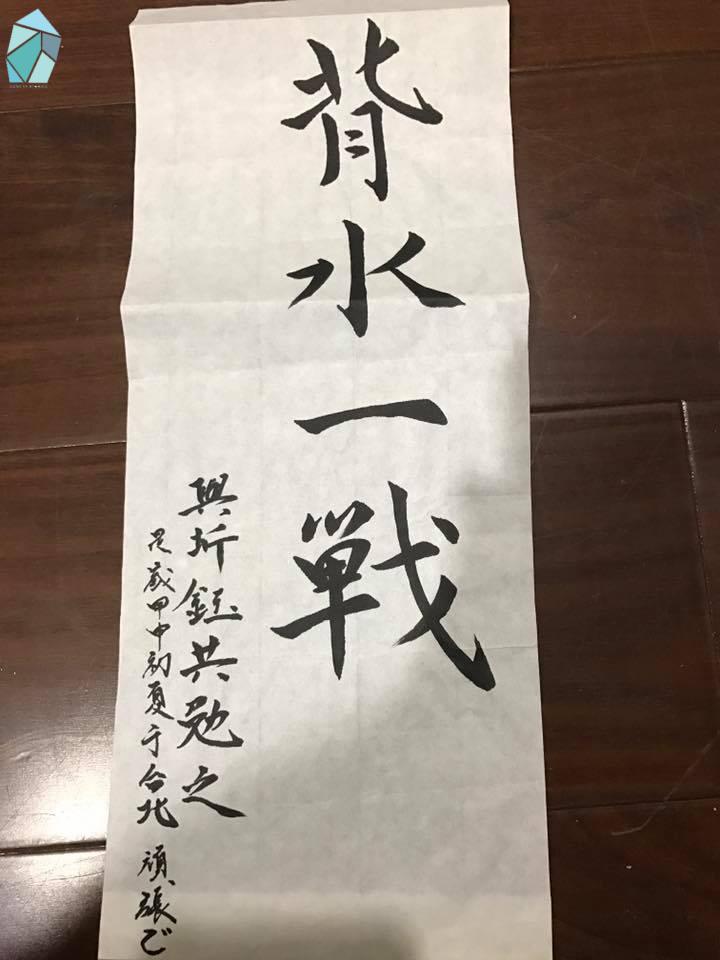 背水一戰
與圻鈺共勉之
是歲甲申初夏于台北 頑張で